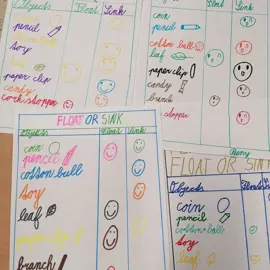 Objects Float Sink
pencil
toy
leaf
paper clip
candy
cork stopper
Float Sink
coin
pencil
cotton ball
leaf
paper clip
candy
branch
stopper
FLOAT OR SINK
Objects Float Sink
coin
pencil
cotton ball
toy
leaf
paper clip
branch
FLOAT OR SIN
Objects Float
coin
pencil
cotton ball
toy
leaf